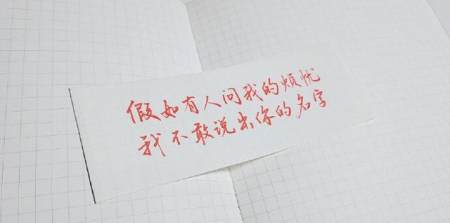 假如有人问我的烦忧
我不敢说出你的名字